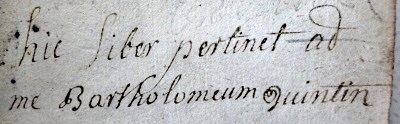 hic liber pertinet ad
me Bartholomeum Quintin